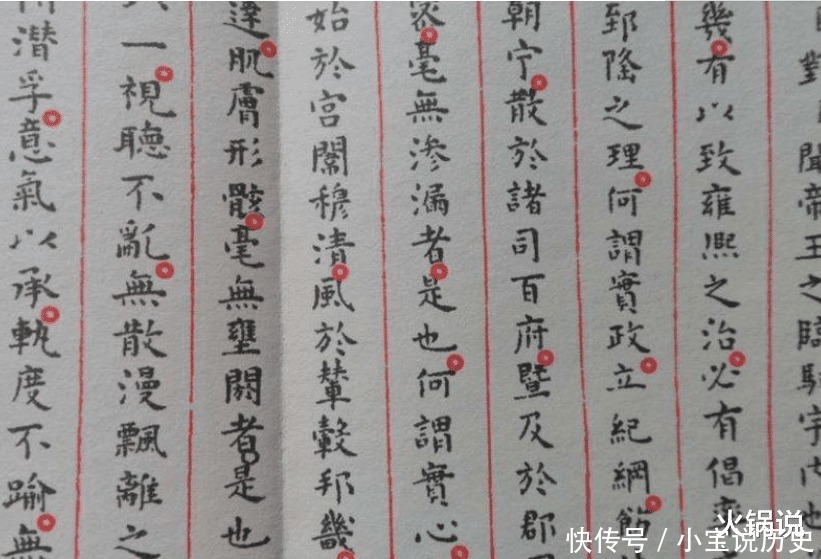 對臣聞帝王之臨馭宇内也
幾有以致雍熙之治必有倡率
郅隆之理何謂實政立紀綱飭
朝宁散於諸司百府暨及於郡
密毫無滲漏者是也何謂實心
始於宮闈穆清風於輦轂邦畿
達肌膚形骸毫無壅閼者是也
一視聽不亂無散漫飄離之
潛孚意氣以承執度不踰無
火锅说
快传号/小宝说历史